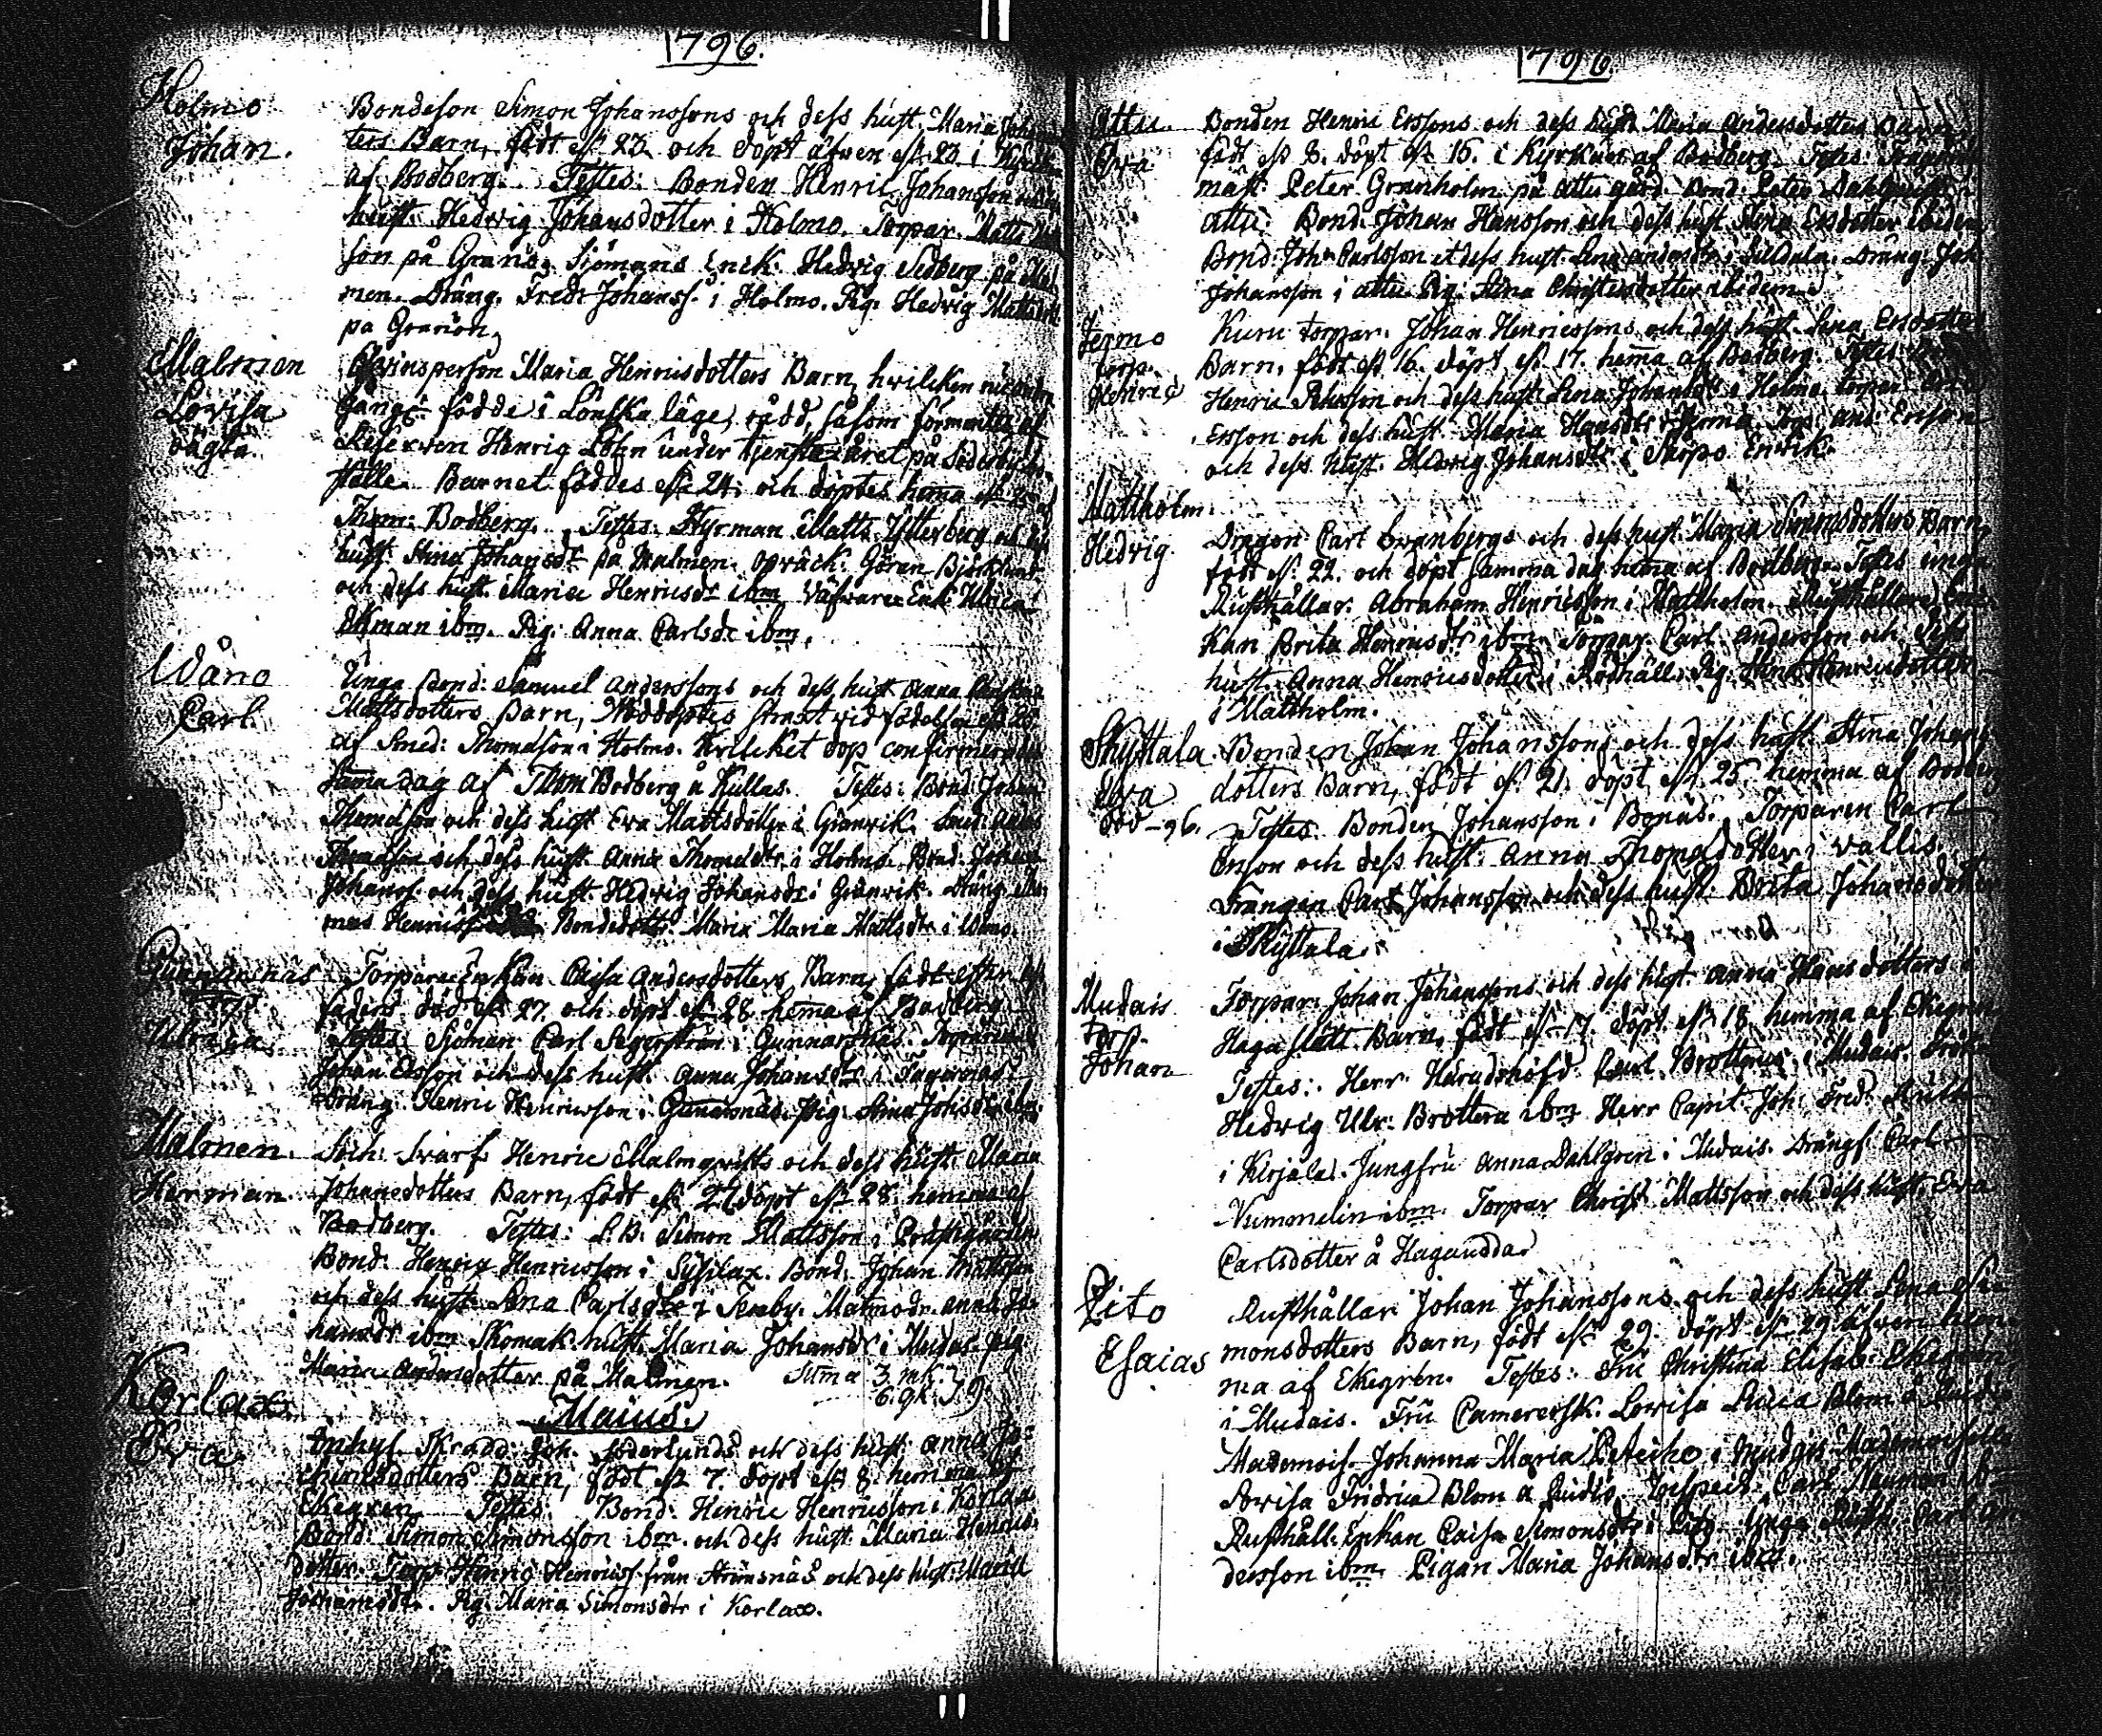 1796.
Holmo
Johan.
Bondeson Simon Johanssons och dess hust. Maria Johans
ters Barn, född d. 23. och döpt äfwen d. 23 i Kyrckan
af Bodberg. Testes: Bonden Henric Johansson och dess
hust. Hedwig Johansdotter i Holmo. Torpar. Matts
son på Granö, Sjömans Enck. Hedvig Sedberg på Mal
men. Dräng. Fredr Johanss. i Holmo. Pig. Hedvig Mattsdr
pa Granön,
Malmen
Lovisa
oägta.
Qvinsperson Maria Henricsdotters Barn, hwilcken
gång födde i Lönska läge, rådd, såsom förmentes af
Reserven Henrig Löfn under tjenste året på Söderby
ställe. Barnet föddes d. 24. och döptes hema d. 25 af
Thom: Bodberg. Testes: Styrman Matts Ytterberg och dess
hust. Stina Johansdr på Malmen. Göran Björklund
och dess hust. Maria Henricsdr ibm. Enk. Ulrica
Ekman ibm. Pig: Anna Carlsdr ibm.
Wåno
Carl.
Unga Bond: Samuel Anderssons och dess hust Anna Christina
Mattsdotters Barn, Nöddöptes straxt vid födelsen d. 26.
af Smed: Thomasson i Holmo. Hvilcket dop confirmerades
Samma dag af Thom Bodberg å Kullas. Testes: Bond. Johan
Thomasson och dess hust Eva Mattsdotter i Granvik. Smed. Anders
Thomasson och dess hust Anna Thomasdr i Holmo. Bond. Johan
Johanss. och dess hust. Hedvig Johansdr i Granvik. Dräng. Tho
mas Henricss Bondedottr. Maria Maria Mattsdr i Wåno.
Gunnarsnäs
Torp.
Ulrica
Torpare Enkan Caisa Andersdotters Barn, födt efter
faders död d. 27. och döpt d. 28 hema af Bodberg
Testes: Sjöman Carl Segerström i Gunnarsnäs. Torparen
Johan Ersson och dess hust. Anna Johansdr i Fagernäs
Dräng. Henric Henricsson i Gunnarsnäs. Pig: Anna Johsdr ibm.
Malmen.
Herman.
Soch: Svarf Henric Malmqvists och dess hust. Maria
Johansdotters Barn, födt d. 27 döpt d. 28. hemma af
Bodberg. Testes: Simon Mattsson i Prästgården
Bond. Henrig Henricsson i Sysilax. Bond. Johan Mattsson
och dess hust. Lena Carlsdtr i Tenby. Matmodr. Anna Jo-
hansdr ibm Skomak. hust. Maria Johansdr i Mudais. pig
Maria Andersdotter på Malmen. Suma 3 mk.
6. qk. } 9.
Majus.
Korlax
Eva.
Inhys. Skradd. Joh. Söderlunds och dess hust. Anna Jo-
chimsdotters Barn, födt d. 7. döpt d. 8. hemma af
Ekegren. Testes: Bond: Henric Henricsson i Korlax
Bond: Simon Simonsson ibm. och dess hust. Maria Henrics-
dotter. Torp. Henrig Henricss. från Strömsnäs och dess hust. Maria
Johansdr. Pig: Maria Simonsdtr i Korlax.
1796.
Attu.
Eva
Bonden Henric Erssons och dess hust Maria Andersdotters Barn,
födt d. 8. döpt d. 15. i Kyrckan af Bodberg. Testes:
mäst. Peter Granholm på Attu gård. Bond. Peter Dahlqvist i
Attu, Bond. Johan Hansson och dess hust. Stina Ersdotter ibidem.
Bond. Joh. Carlsson et dess hust. Lena Andersdr i Sildala. Dräng. Joh
Johansson i Attu. Pig: Stina Christersdotter ibidem.
Jermo
torp.
Henric
Kuru torpar. Johan Henricssons och dess hust. Lena Ersdotters
Barn, födt d. 16. döpt d. 17. hema af Bodberg. Testes:
Henric Johansson och dess hust. Lena Johansdtr i Holma. torpar.
Ersson och dess hust. Maria Hansdtr i Jerma. Torp. And: Ersson
och dess hust. Hedvig Johansdtr i Skogs Ensrik.
Mattholm.
Hedvig.
Dragon Carl Granbergs och dess hust Maria Simonsdotters Barn,
födt d. 22. och döpt samma dag hema af Bodberg. Testes unga
Rusthållar. Abraham Henricsson i Mattholm. Rusthållare En-
kan Brita Henricsdtr ibm. Torpar. Carl Andersson och dess
hust. Anna Henricsdotter i Rödhäll. Pig. Stina Henricsdotter
i Mattholm.
Skyttala
Eva
död -96.
Bonden Johan Johanssons och dess hust Stina Johans
dotters Barn, födt d. 21. döpt d. 25 hemma af Bodberg
Testes. Bonden Johansson i Bonäs. Torparen Carl
Ersson och dess hust. Anna Thomasdotter i Vallis.
Drängen Carl Johansson och dess hust. Brita Johansdotter
i Skyttala.
Mudais
torp.
Johan
Torpar. Johan Johanssons och dess hust. Anna Hansdotters i
Haga Slätt Barn, födt d. 17. döpt d. 18. hemma af Ekegren
Testes: Herr Häradshöfd. Carl Brotterus i Mudais.
Hedvig Ulr. Brottera ibm. Herr Capit. Joh. Fred.
i Kirjala. Jungfru Anna Dahlgren i Mudais. Drängs. Carl
Nummelin ibm. Torpar Christ. Mattsson och dess hust. Eva
Carlsdotter å Haguddar
Pito
Esaias
Rusthållar. Johan Johanssons och dess hust Lena Si-
monsdotters Barn, födt d. 29. döpt d. 29 äfwen hem-
ma af Ekegrén. Testes: Fru Christina Elisab. Ekegren
i Mudais. Fru Camerersk. Lovisa Lucia Blom å
Mademois. Johanna Maria Peteiche i Mudais. Mademoiselle
Lovisa Fridrica Blom å Carl Neuman
Rusthåll. Enkan Caisa Simonsdtr i Pito. Unga Rusth. Carl An
dersson ibm. Pigan Maria Johansdtr ibm.